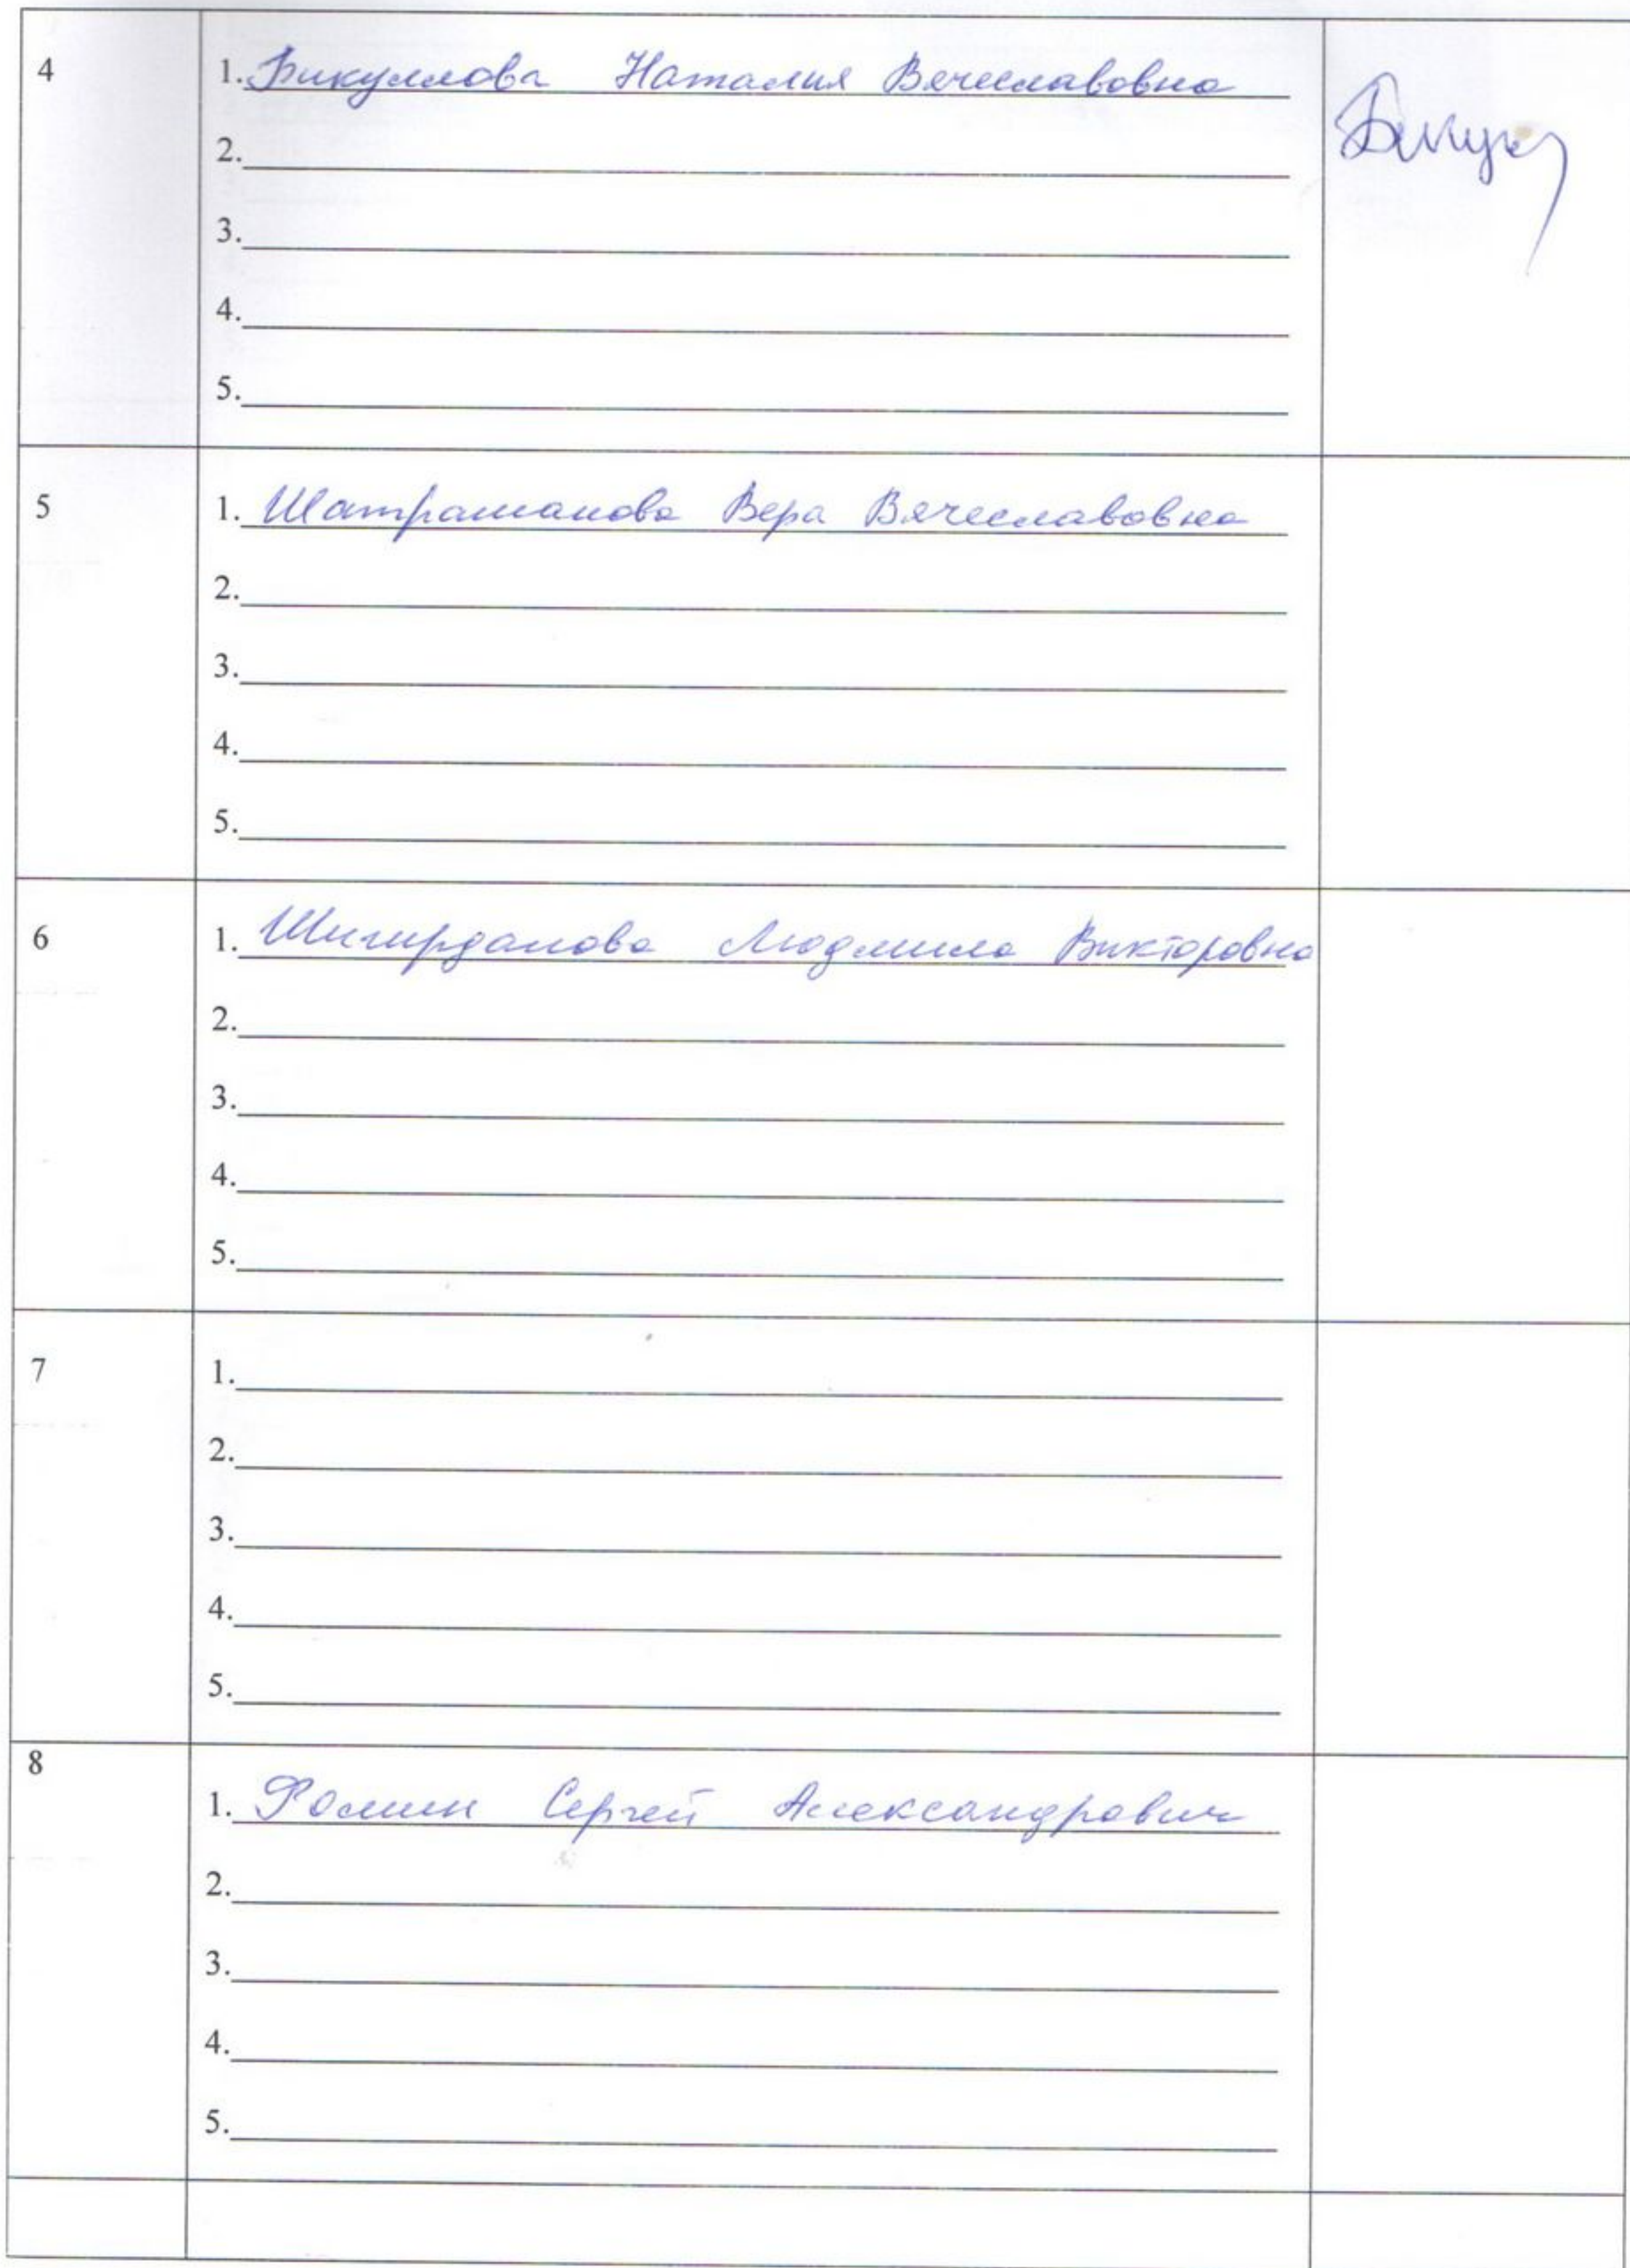 4
1. Бикулова Наталия Вячеславовна
2.
3.
4.
5.
5
1. Шатрашанова Вера Вячеславовна
2.
3.
4.
5.
6
1. Шигирданова Людмила Викторовна
2.
3.
4.
5.
7
1.
2.
3.
4.
5.
8
1. Фомин Сергей Александрович
2.
3.
4.
5.